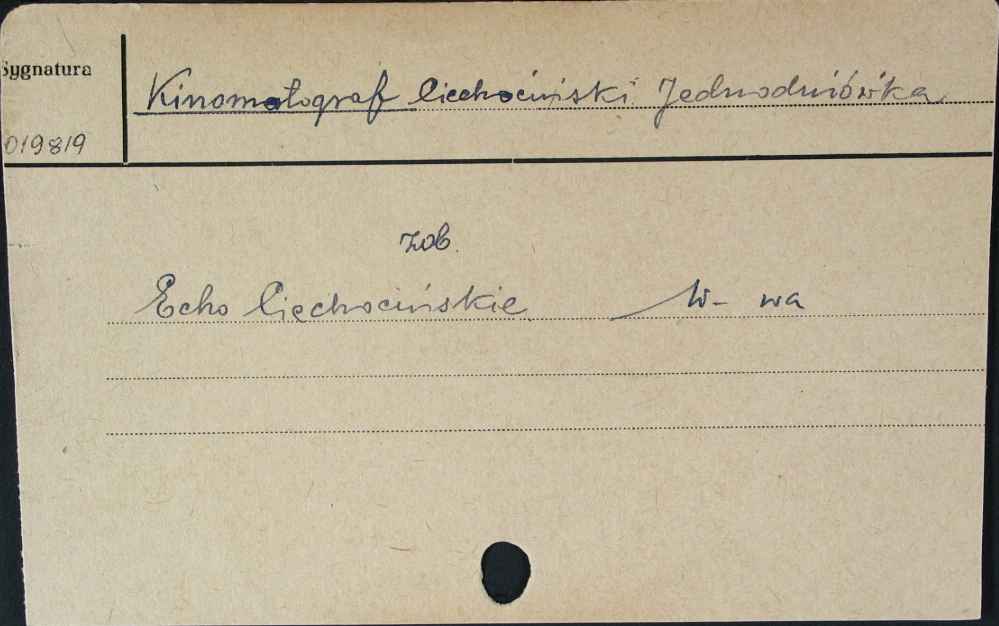 Sygnatura
Kinomatograf Ciechociński Jednodniówka
019819
zob.
Echo Ciechocińskie W-wa